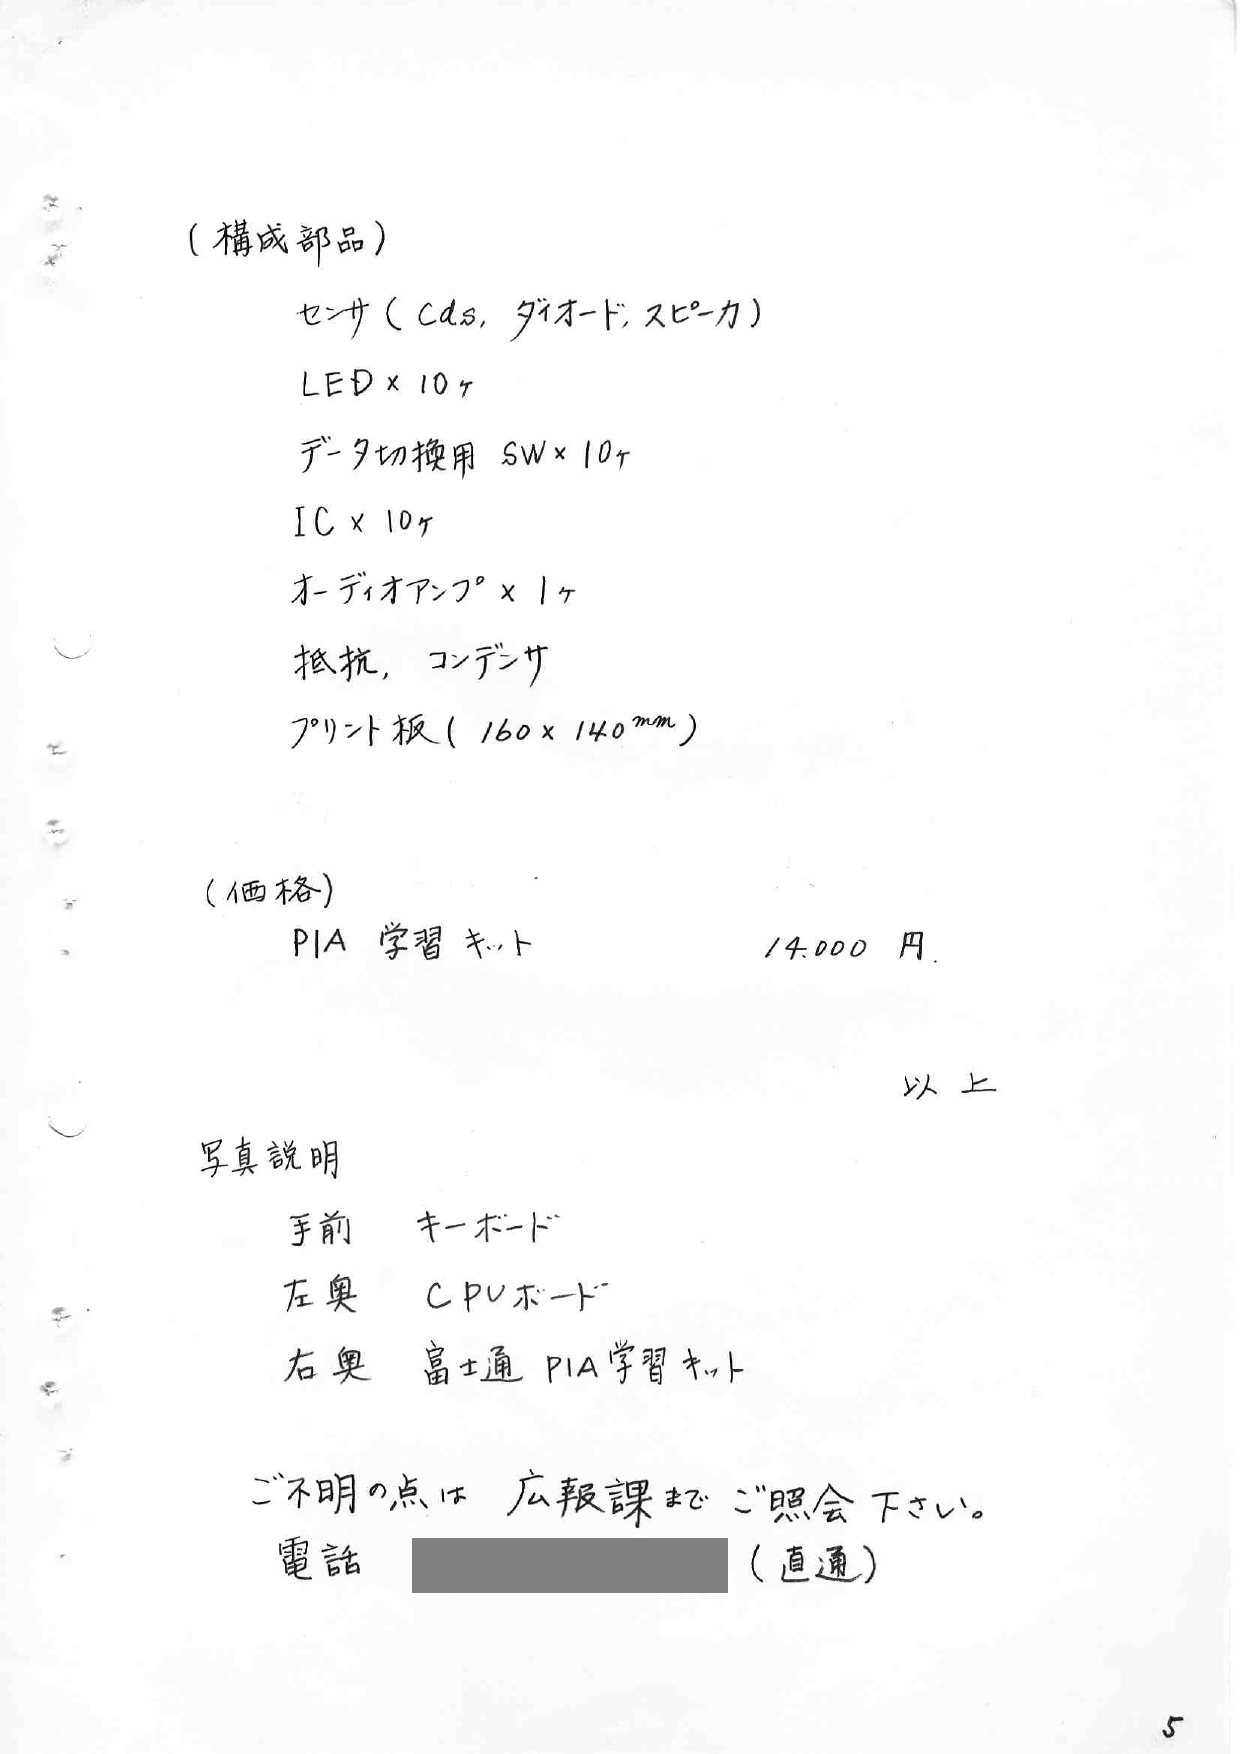 (構成部品)
センサ(Cds, ダイオード, スピーカ)
LED × 10ケ
データ切換用 SW × 10ケ
IC × 10ケ
オーディオアンプ × 1ケ
抵抗, コンデンサ
プリント板(160 × 140mm)
(価格)
PIA 学習キット 14.000 円.
以上
写真説明
手前 キーボード
左奥 CPUボード
右奥 富士通 PIA学習キット
ご不明の点は 広報課まで ご照会下さい。
電話 (直通)
5